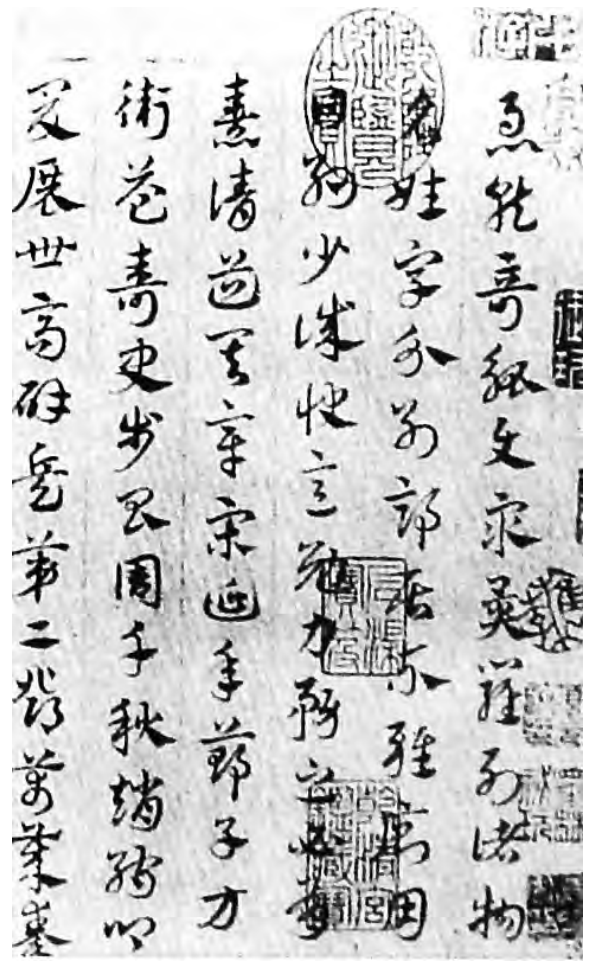 急就奇觚與衆異羅列諸物
名姓字分別部居不雜廁用
日約少誠快意勉力務之必有
憙請道其章宋延年鄭子方
衛益壽史步昌周千秋趙孺卿
爰展世高辟兵第二鄧萬歲秦